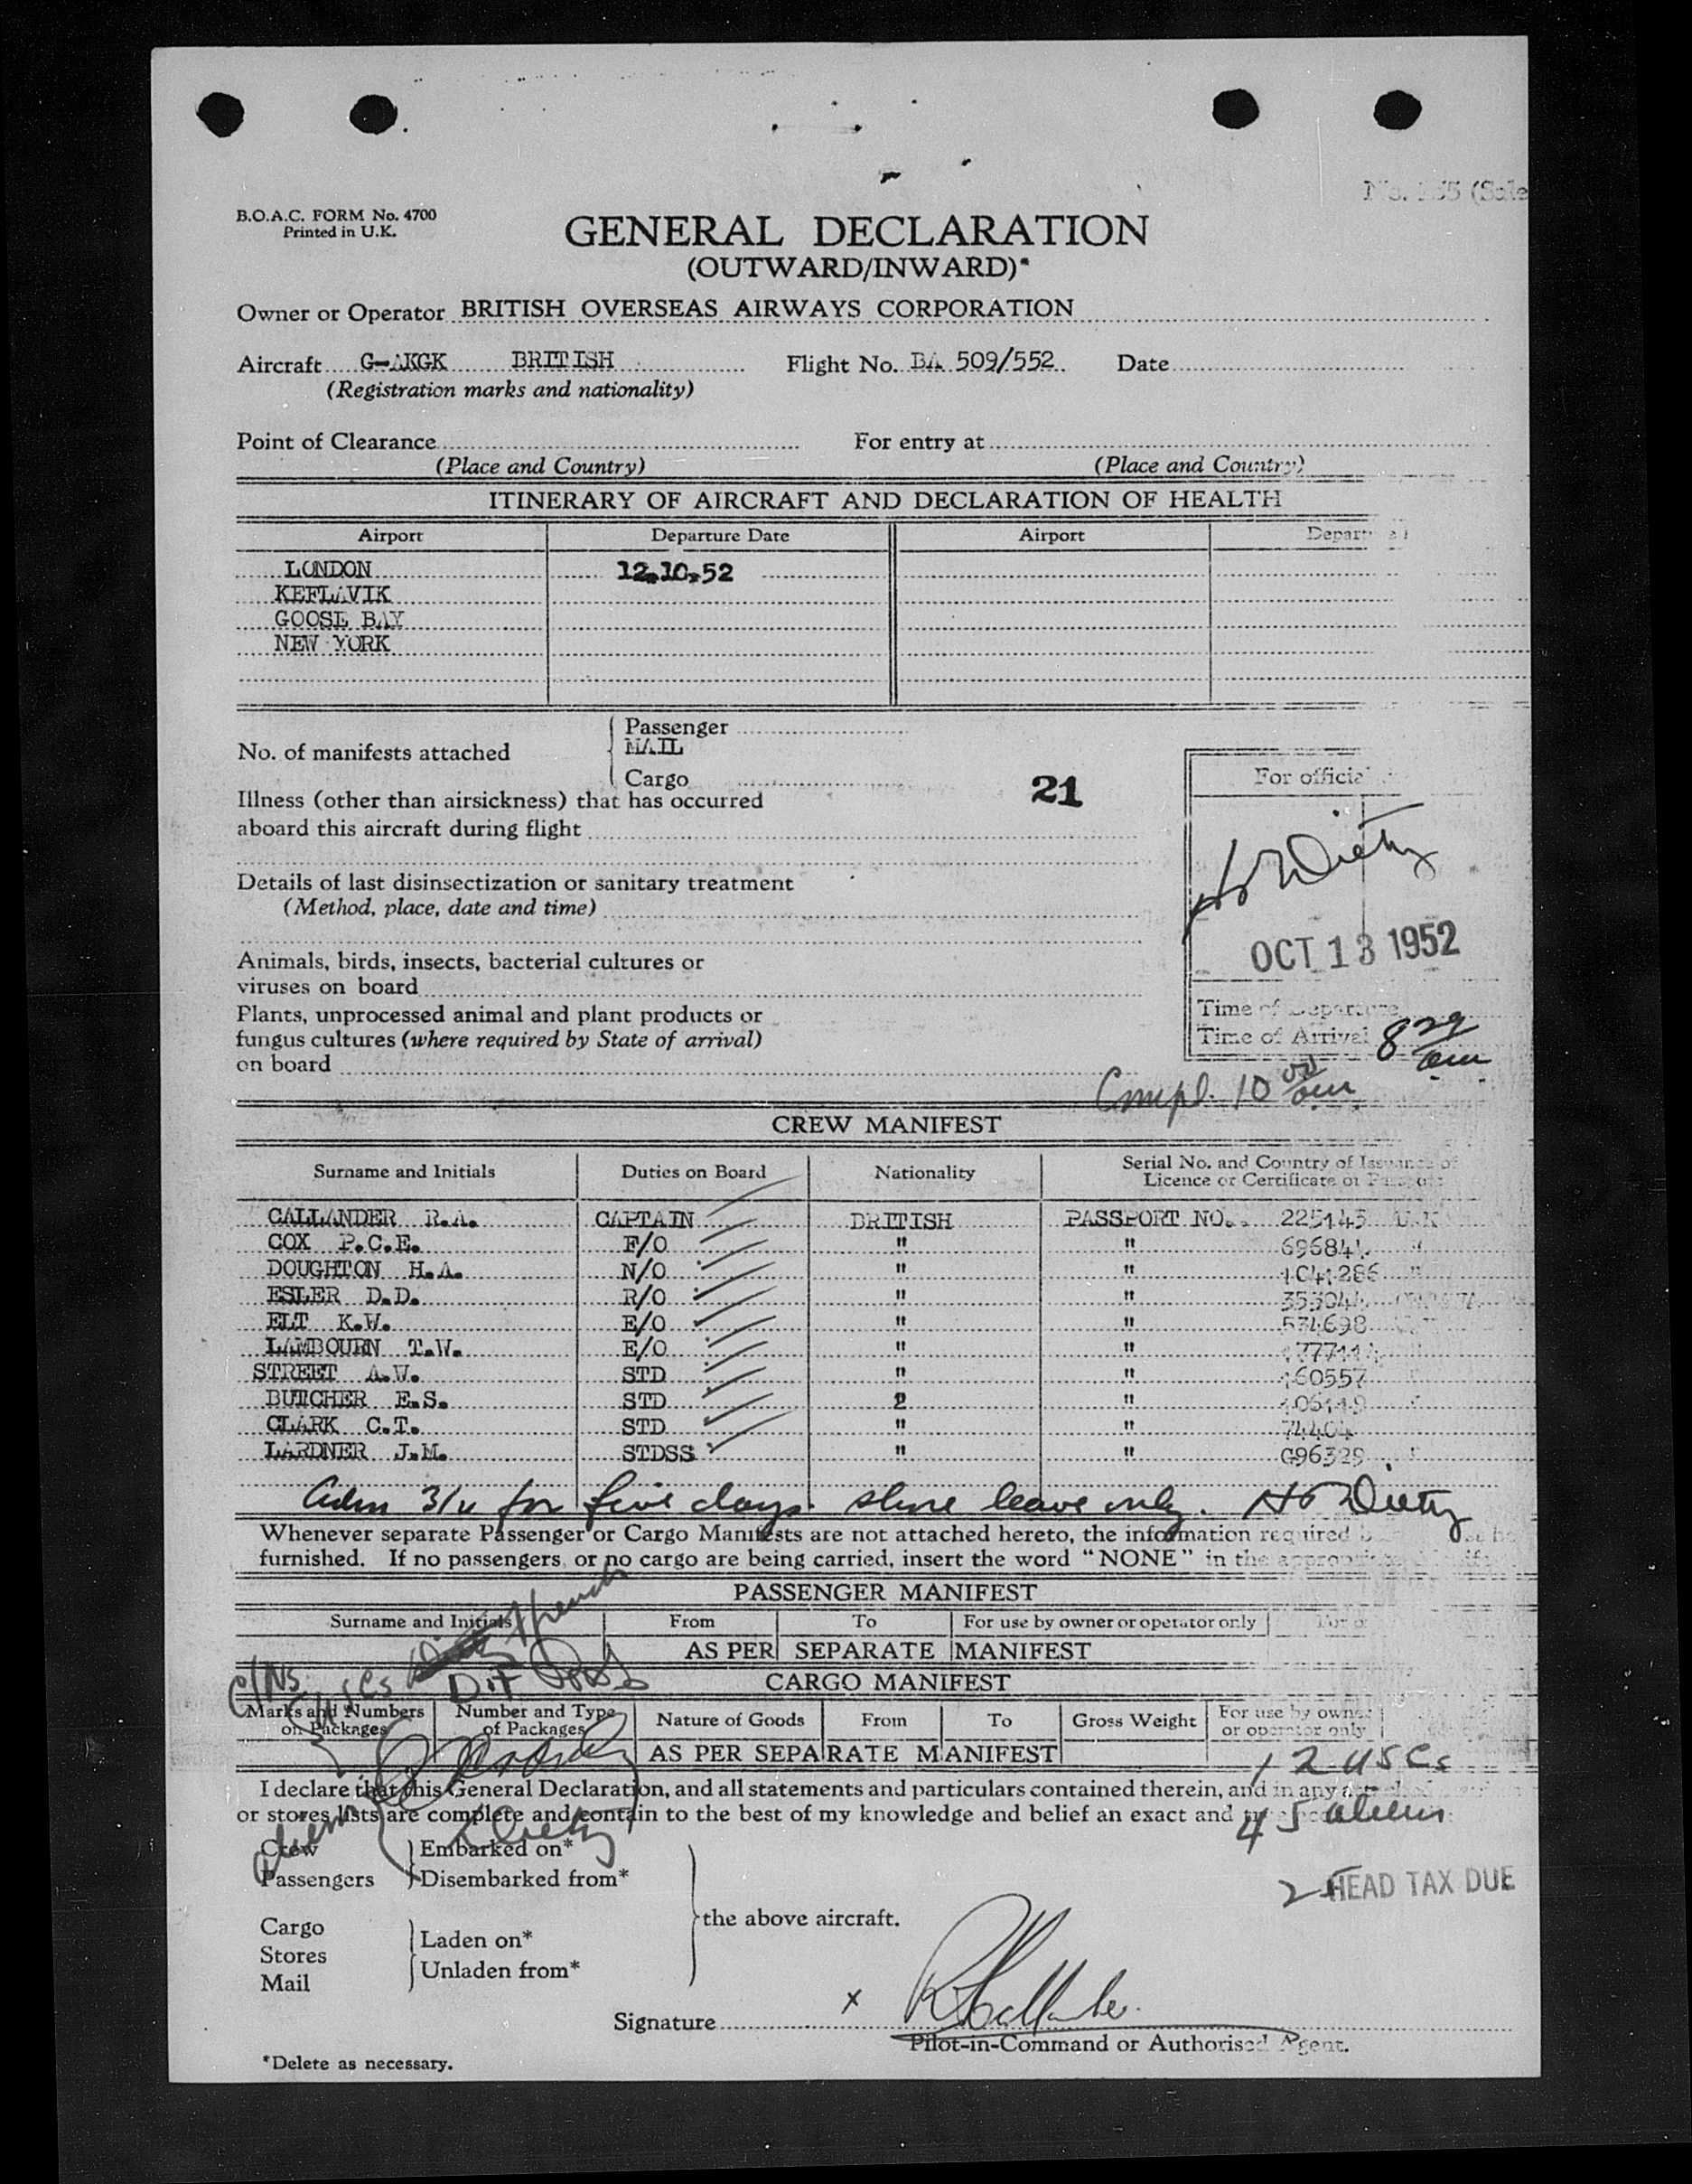 B.O.A.C. FORM No. 4700
Printed in U.K.
GENERAL DECLARATION
(OUTWARD/INWARD)*
Owner or Operator BRITISH OVERSEAS AIRWAYS CORPORATION
Aircraft G-AKGK BRITISH Flight No. BA 509/552 Date
(Registration marks and nationality)
Point of Clearance For entry at
(Place and Country) (Place and Country)
ITINERARY OF AIRCRAFT AND DECLARATION OF HEALTH
Airport Departure Date Airport
LONDON 12.10.52
KEFLAVIK
GOOSE BAY
NEW YORK
Passenger
No. of manifests attached MAIL
Cargo
21
For official
Illness (other than airsickness) that has occurred
aboard this aircraft during flight
Details of last disinsectization or sanitary treatment
(Method, place, date and time)
OCT 13 1952
Animals, birds, insects, bacterial cultures or
viruses on board
Plants, unprocessed animal and plant products or
fungus cultures (where required by State of arrival)
on board
Time of Departure
Time of Arrival 8 29 am
Compl. 10 00 am
CREW MANIFEST
Surname and Initials Duties on Board Nationality Serial No. and Country of Issuance of
Licence or Certificate or Passport
CALLANDER R.A. CAPTAIN BRITISH PASSPORT NO. 225143 U.K
COX P.C.E. F/O " "
DOUGHTON H.A. N/O " " 1041286 "
ESLER D.D. R/O " "
ELT K.W. E/O " " 534698
LAMBOURN T.W. E/O " "
STREET A.W. STD " " 160557
BUTCHER E.S. STD 2 "
CLARK C.T. STD " " 74404
LARDNER J.M. STDSS " " G96329
Adm 3/u for five days shore leave only.
Whenever separate Passenger or Cargo Manifests are not attached hereto, the information required
furnished. If no passengers or no cargo are being carried, insert the word "NONE" in the
PASSENGER MANIFEST
Surname and Initials From To For use by owner or operator only
AS PER SEPARATE MANIFEST
CARGO MANIFEST
Marks and Numbers on Packages Number and Type of Packages Nature of Goods From To Gross Weight For use by owner or operator only
AS PER SEPARATE MANIFEST
12 USCs
I declare that this General Declaration, and all statements and particulars contained therein, and in any
or stores lists are complete and contain to the best of my knowledge and belief an exact and
45 aliens
Crew Embarked on*
Passengers Disembarked from*
2 HEAD TAX DUE
the above aircraft.
Cargo
Stores Laden on*
Mail Unladen from*
Signature x
Pilot-in-Command or Authorised Agent.
*Delete as necessary.